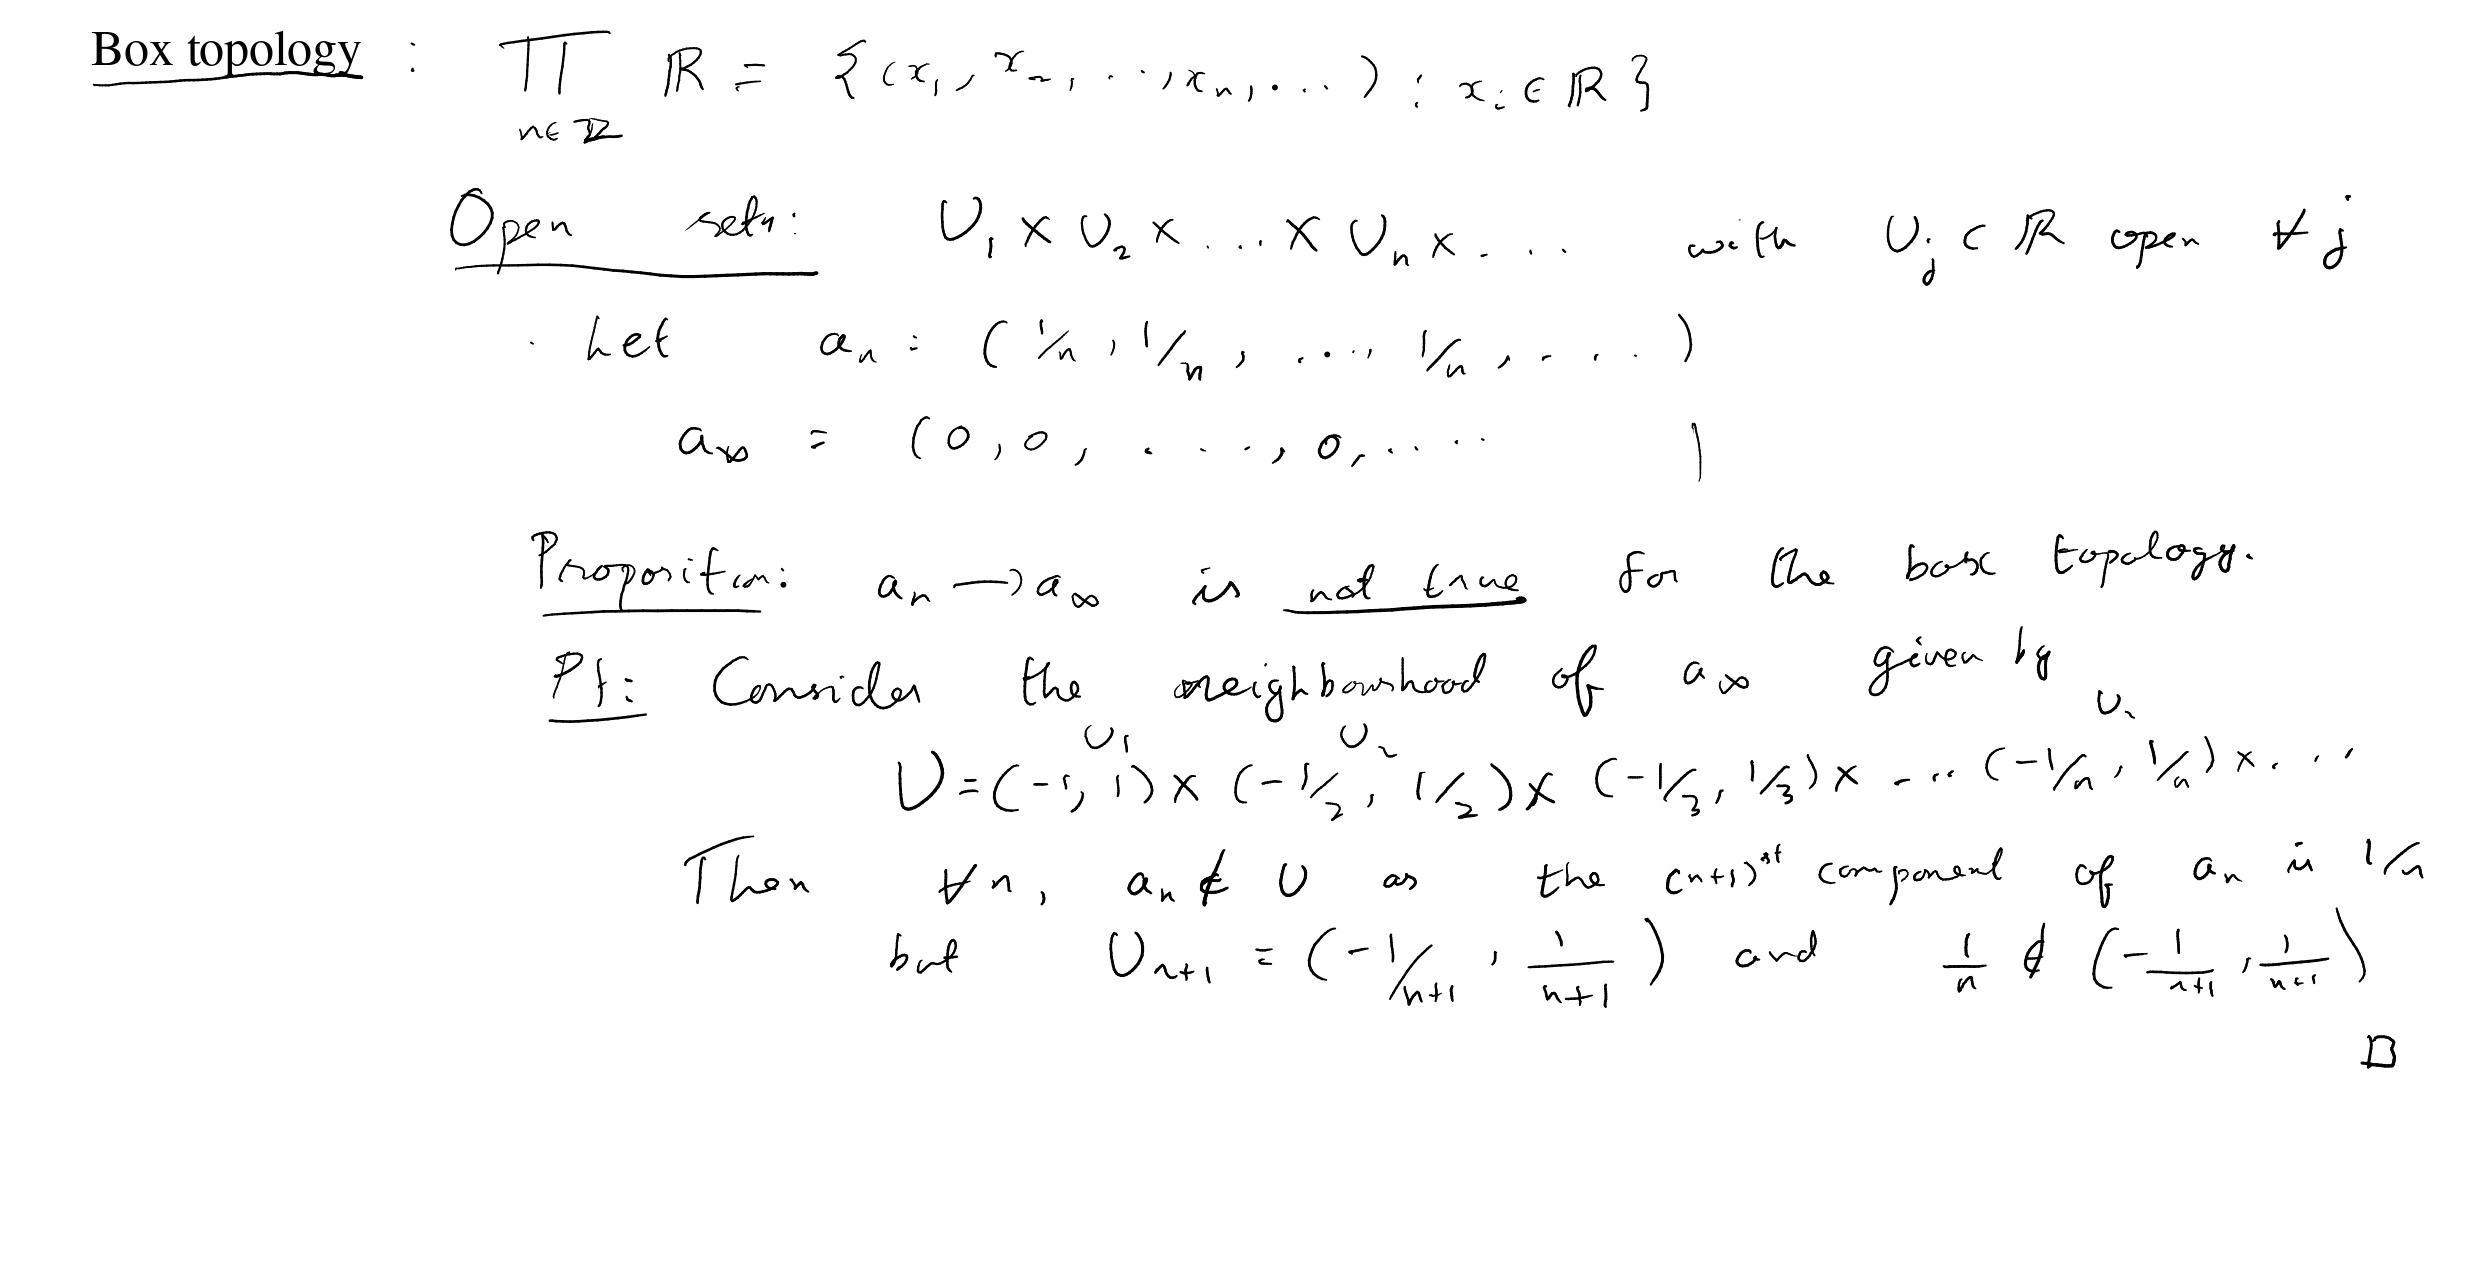 Box topology : ∏ ℝ = {(x₁, x₂, ..., xₙ, ...) : xᵢ ∈ ℝ}
n∈ℤ
Open sets: U₁ × U₂ × ... × Uₙ × ... with Uⱼ ⊂ ℝ open ∀ j
. Let aₙ = (1/n, 1/n, ...., 1/n, ....)
a∞ = (0, 0, ....., 0, .....)
Proposition: aₙ → a∞ is not true for the box topology.
Pf: Consider the neighbourhood of a∞ given by
U₁ U₂ Uₙ
U = (-1, 1) × (-1/2, 1/2) × (-1/3, 1/3) × .... (-1/n, 1/n) × ....
Then ∀n, aₙ ∉ U as the (n+1)ˢᵗ component of aₙ is 1/n
but Uₙ₊₁ = (-1/n+1, 1/n+1) and 1/n ∉ (-1/n+1, 1/n+1)
□